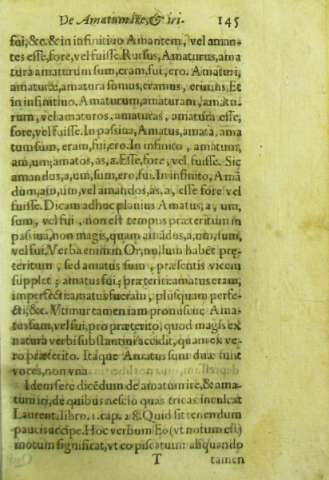 De Amatum ire, & iri. 145
fui, &c. & in infinitiuo Amantem, vel aman-
tes esse, fore, vel fuisse. Rursus, Amaturus, ama
tura amaturum sum, eram, fui, ero. Amaturi,
amaturæ, amatura sumus, eramus, erimus. Et
in infinitiuo. Amaturum, amaturam, amatu-
rum, vel amaturos, amaturas, amatura esse,
fore, vel fuisse. In passiua, Amatus, amata, ama
tum sum, eram, fui, ero. In infinitiuo, amatum,
am, um; amatos, as, a. Esse, fore, vel fuisse. Sic
amandus, a, um, sum, ero, fui. In infinito, Amā
dum, am, um, vel amandos, as, a, esse fore vel
fuisse. Dicam adhoc planius Amatus, a, um,
sum, vel fui, non est tempus præteritum in
passiua, non magis, quam amādus, a, um, sum,
vel fui. Verba enim in Or, nullum habēt præ-
teritum, sed amatus sum, præsentis vicem
supplet; amatus fui, præteriti: amatus eram,
imperfecti: amatus fueram, plusquam perfe-
cti, &c. Vtimur tamen iam promiscue Ama-
tus sum, vel fui, pro præterito, quod magis ex
natura verbi substantiui accidit, quam ex ve-
ro præterito. Itaque Amatus sum duæ sunt
voces, non vna
Idem ferè dicēdum de amatum ire, & ama-
tum iri, de quibus nescio quas tricas inculcat
Laurent. libro. 1. cap. 28. Quid sit tenendum
paucis accipe. Hoc verbum Eo (vt notum est)
motum significat, vt eo piscatum aliquando
T tamen